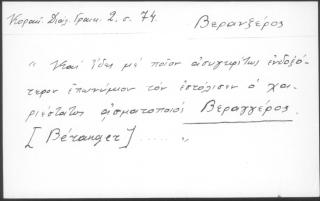 Κοραή. Διάλ. Γραικ. 2. σ. 74.
Βερανξέρος
" Καὶ ἰδὲς μὲ ποῖον ἀσυγκρίτως ἐνδοξό-
τερον ἐπωνύμιον τὸν ἐστόλισεν ὁ χα-
ριέστατος ᾀσματοποιὸς Βεραγγέρος
[Béranger] ..... "